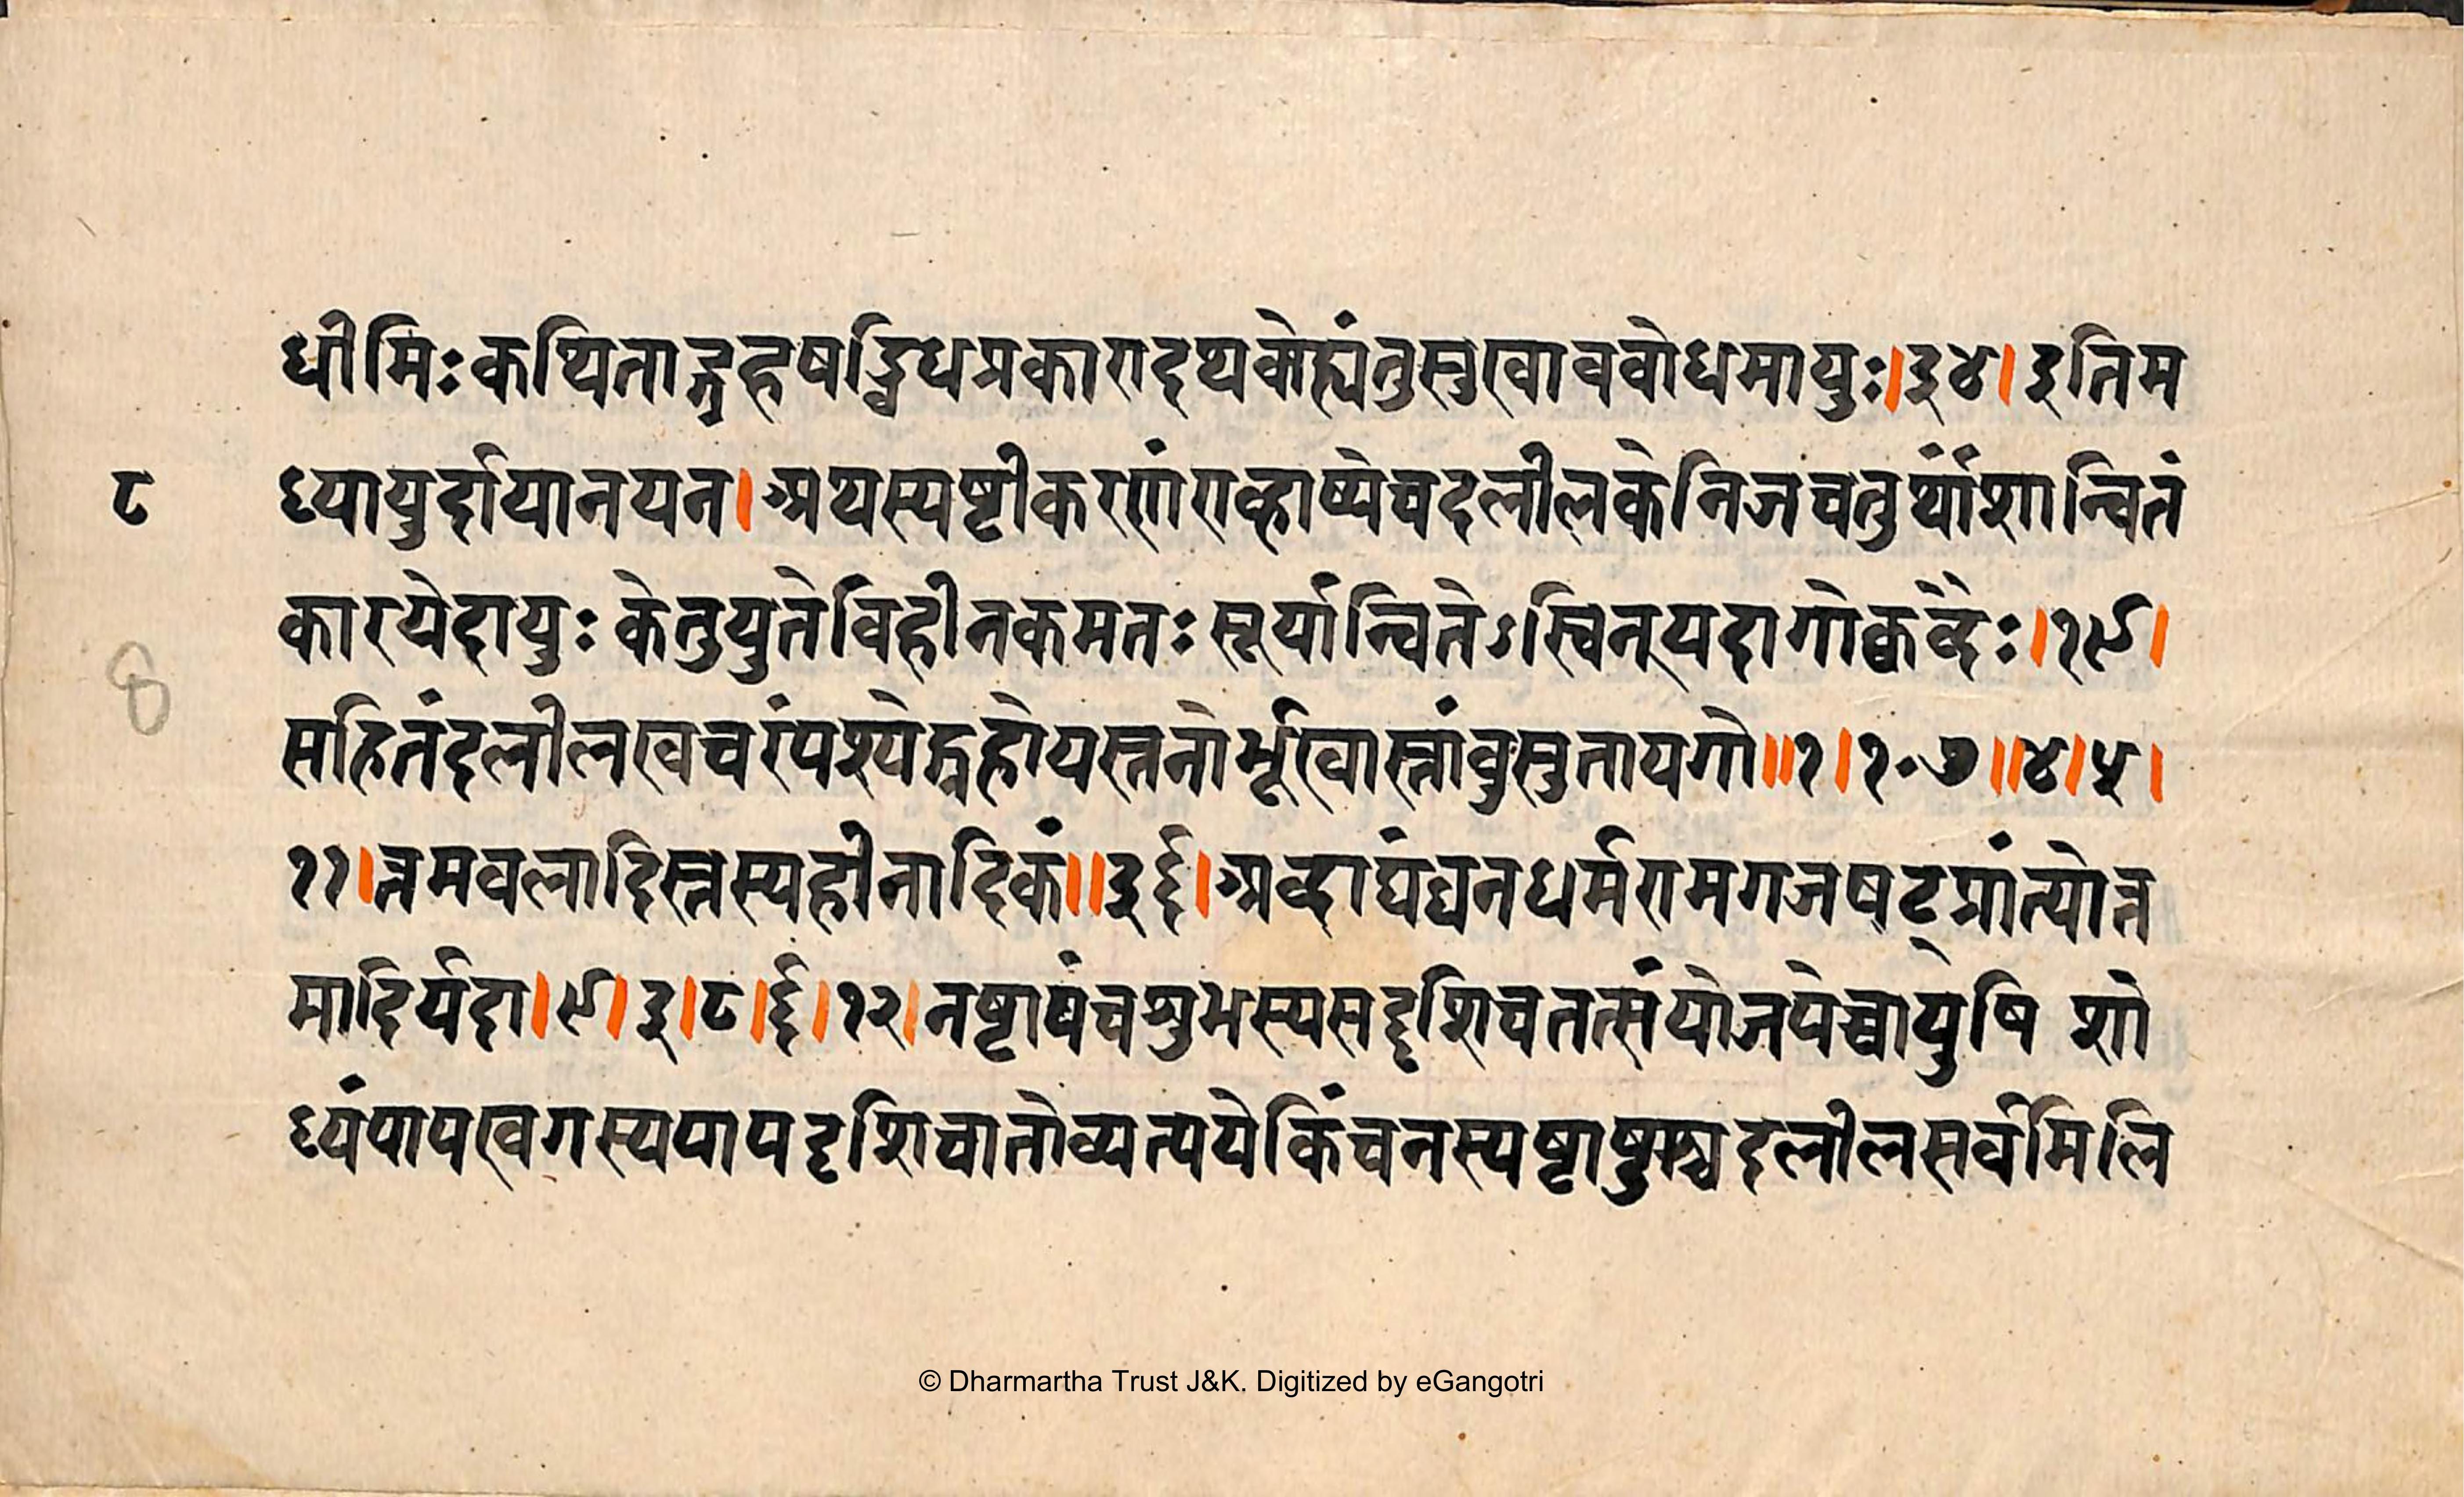 धीमिः कथिताद्गृहषड्विधप्रकारादथवोह्यंतुसुखाववोधमायुः।३४। इतिम
ध्यायुर्दायानयन। अथस्यष्टीकरणंराव्हाष्येचदलीलकेनिजचतुर्थांशान्वितं
कारयेदायुः केतुयुतेविहीनकमतः सूर्यान्वितेऽस्विनूयदागोक्वब्दैः।१९।
सहितंदलीलखचरंपश्येद्ग्रहोयस्तनोर्भूखास्तांवुसुतायगो॥१।१॰७॥४।५।
११।त्तमवलादिस्तस्यहीनादिकं॥३६।अब्दाघंद्यनधर्मरामगजषट्प्रांत्योत्त
मादिर्यदा।९।३।८।६।१२।नष्टाषंचशुभस्यसद्दृशिचतत्संयोजयेच्चायुषि शो
ध्यंपापखगस्यपापदृशिचातोव्यत्यये किंचनस्यष्टाषुमश्चदलीलसर्वमिलि
८
8
© Dharmartha Trust J&K. Digitized by eGangotri